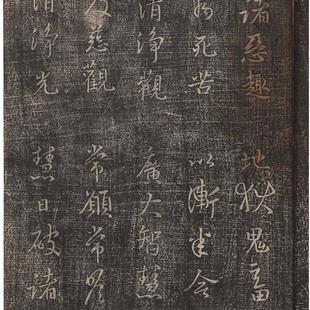 諸惡趣 地獄鬼畜
病死苦 以漸悉令
清淨觀 廣大智慧
及慈觀 常願常瞻
清淨光 慧日破諸